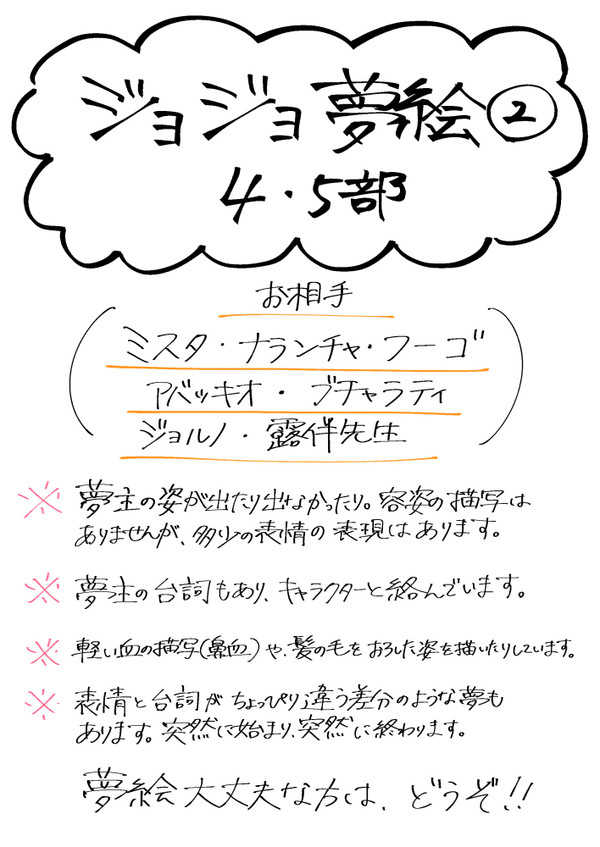 ジョジョ夢絵②
4・5部
お相手
(ミスタ・ナランチャ・フーゴ
アバッキオ・ブチャラティ
ジョルノ・露伴先生)
※ 夢主の姿が出たり出なかったり。容姿の描写は
ありませんが、多少の表情の表現はあります。
※ 夢主の台詞もあり、キャラクターと絡んでいます。
※ 軽い血の描写(鼻血)や、髪の毛をおろした姿を描いたりしています。
※ 表情と台詞がちょっぴり違う差分のような夢も
あります。突然に始まり、突然に終わります。
夢絵大丈夫な方は、どうぞ!!